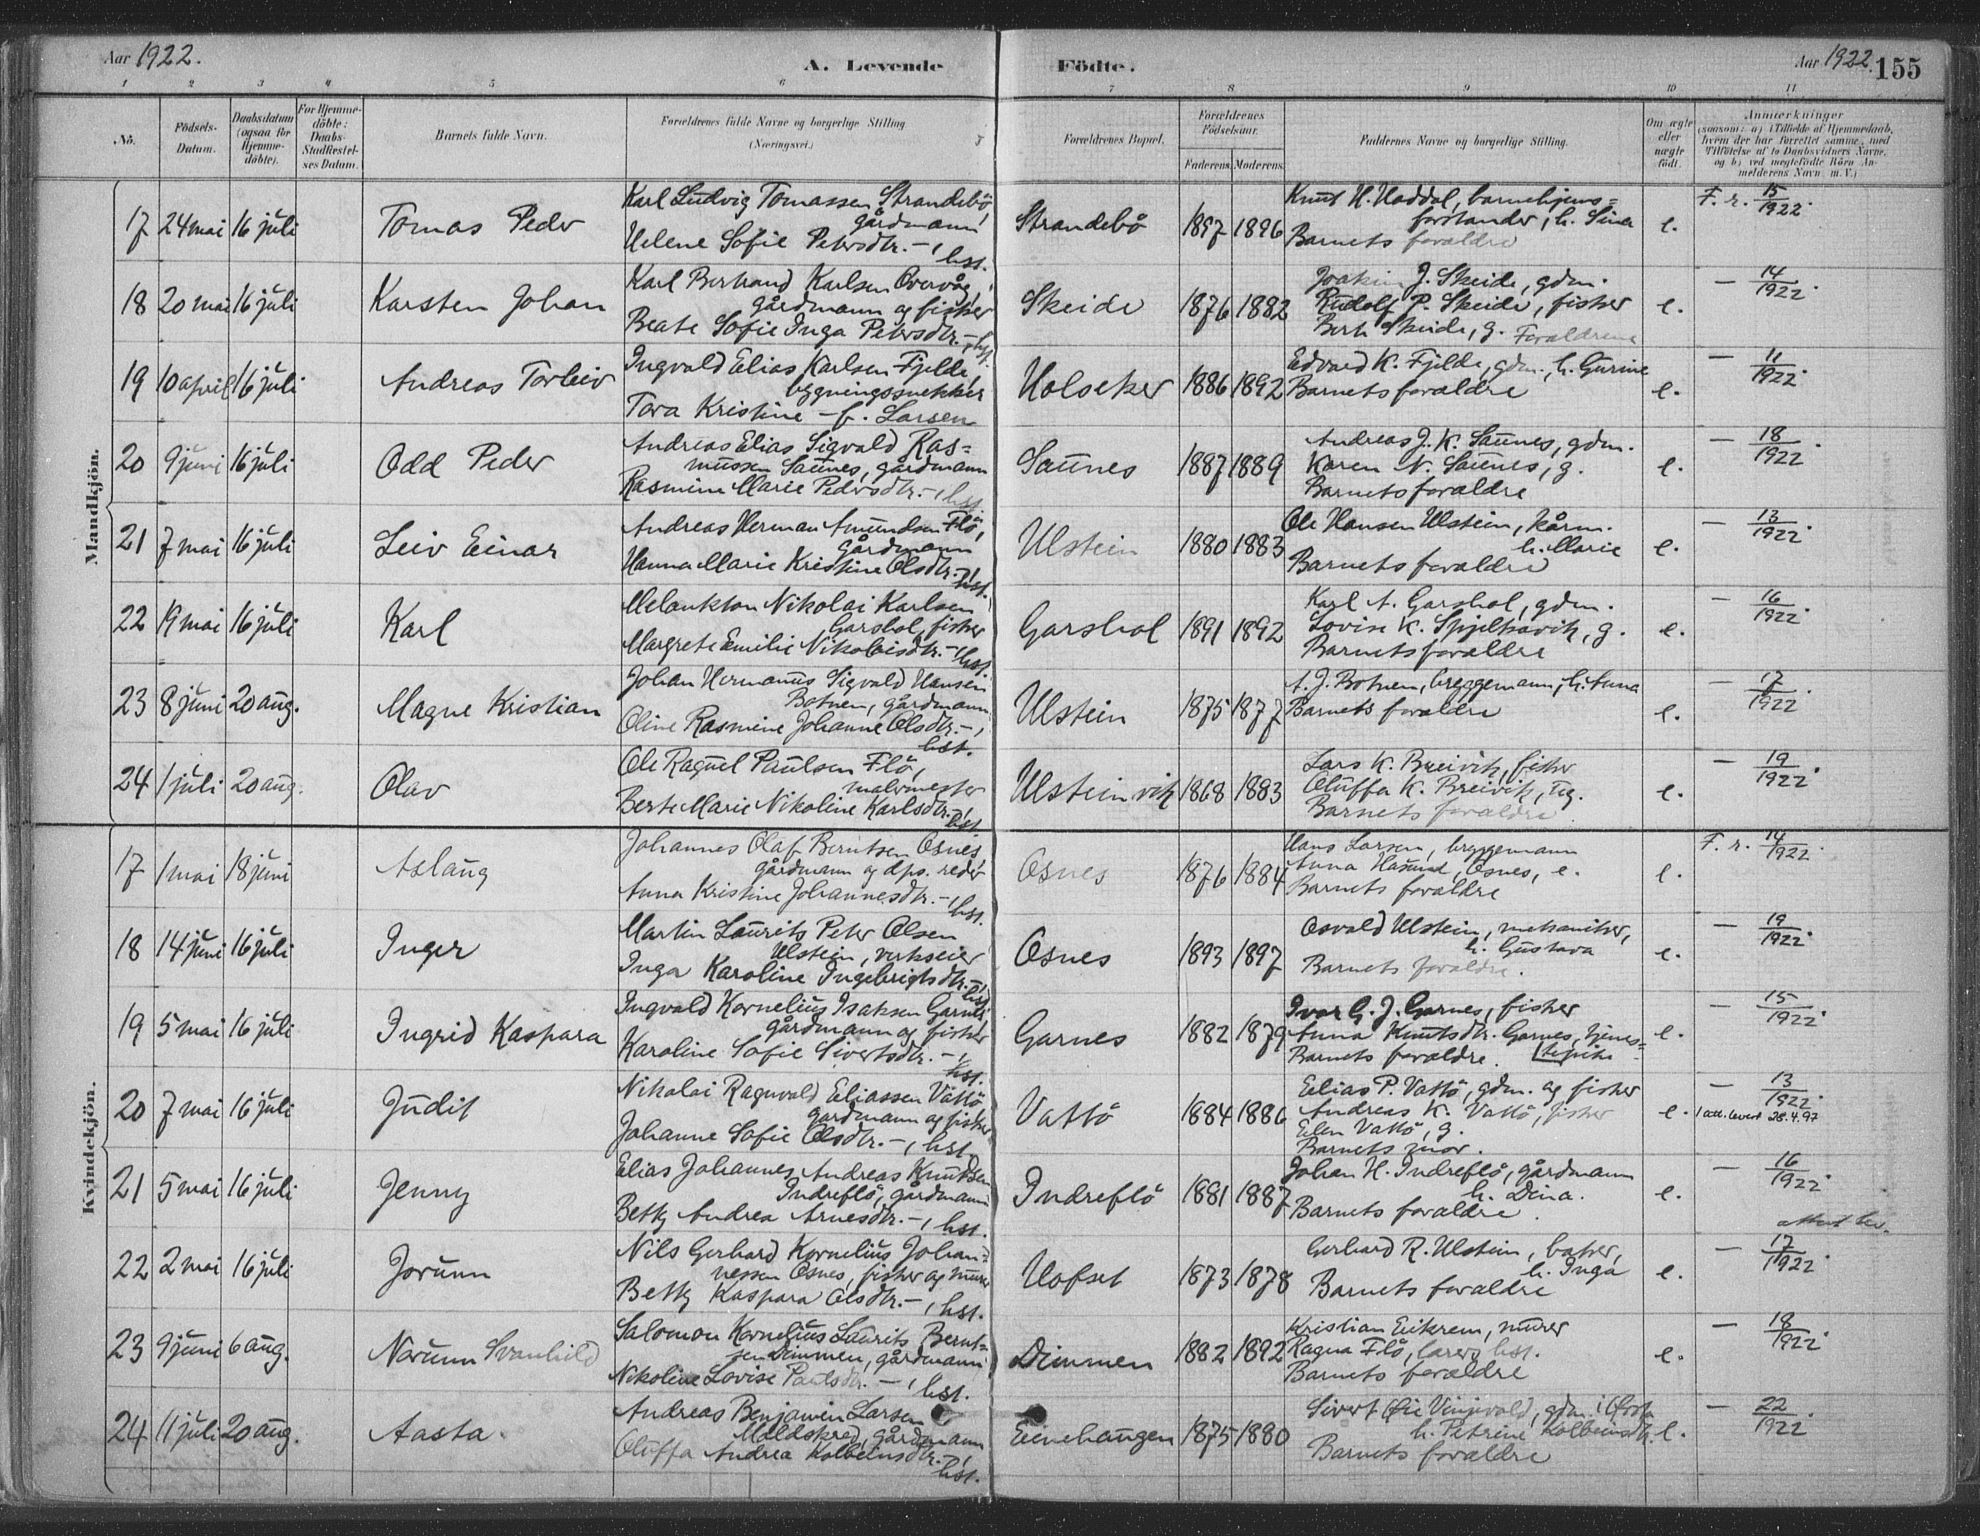 Aar 1922.
A. Levende Födte.
Aar 1922. 155
1 2 3 4 5 6 7 8 9 10 11
No.
Födsels-
Datum.
Daabsdatum
(ogsaa for
Hjemme-
döbte).
For Hjemme-
döbte:
Daabs-
Stadfæstel-
ses Datum.
Barnets fulde Navn.
Forældrenes fulde Navne og borgerlige Stilling
(Næringsvei.)
Forældrenes Bopæl.
Forældrenes
Födselsaar.
Faderens. Moderens.
Faddernes Navne og borgerlige Stilling.
Om ægte
eller
uægte
födt.
Anmærkninger
(saasom: a) i Tilfælde af Hjemmedaab,
hvem der har forrettet samme, med
Tilföielse af to Daabsvidners Navne,
og b) ved uægtefödte Börn An-
melderens Navn m. V.)
Mandkjön.
17 24 mai 16 juli
Tomas Peder
Karl Ludvig Tomassen Strandebö,
gårdmann
Helene Sofie Petersdtr. -, hst.
Strandebö 1897 1896
Knut H. Haddal, barnehjems=
forstander, h. Sina
Barnets foraldre
e.
F. r. 15/1922.
18 20 mai 16 juli
Karsten Johan
Karl Bertrand Karlsen Overvåg,
gårdmann og fisker
Beate Sofie Inga Petersdtr. -, hst.
Skeide 1876 1882
Joakim J. Skeide, gdm.
Rudolf P. Skeide, fisker
Berte Skeide, g. Foraldrene
e.
— 14/1922.
19 10 april 16 juli
Andreas Torleiv
Ingvald Elias Karlsen Fjelde,
bygningssnekker
Tora Kristine - f. Larsen
Holseker 1886 1892
Edvard K. Fjelde, gdm., h. Gurine
Barnets foraldre
e.
— 11/1922.
20 9 juni 16 juli
Odd Peder
Andreas Elias Sigvald Ras=
mussen Saunes, gårdmann
Rasmine Marie Pedersdtr. -, hst.
Saunes 1887 1889
Andreas J. K. Saunes, gdm.
Karen N. Saunes, g.
Barnets foraldre
e.
— 18/1922.
21 7 mai 16 juli
Leiv Einar
Andreas Herman Amundsen Flö,
gårdmann
Hanna Marie Kristine Olsdtr. -, hst.
Ulstein 1880 1883
Ole Hansen Ulstein, kårm.
h. Marie
Barnets foraldre
e.
— 13/1922.
22 19 mai 16 juli
Karl
Melankton Nikolai Karlsen
Garshol, fisker
Margrete Emilie Nikolaisdtr. -, hst.
Garshol 1891 1892
Karl A. Garshol, gdm.
Lovise K. Spjelkavik, g.
Barnets foraldre
e.
— 16/1922.
23 8 juni 20 aug.
Magne Kristian
Johan Hermanus Sigvald Hansen
Botnen, gårdmann
Oline Rasmine Johanne Olsdtr. -,
hst.
Ulstein 1875 1877
A. J. Botnen, bryggemann, h. Anna
Barnets foraldre
e.
— 17/1922.
24 1 juli 20 aug.
Olav
Ole Raguel Paulsen Flö,
malermester
Berte Marie Nikoline Karlsdtr. -, hst.
Ulsteinvik 1868 1883
Lars K. Breivik, fisker
Oluffa K. Breivik, ug.
Barnets foraldre
e.
— 19/1922.
Kvindekjön.
17 1 mai 18 juni
Aslaug
Johannes Olaf Berntsen Osnes,
gårdmann og dps. reder
Anna Kristine Johannesdtr. -, hst.
Osnes 1876 1884
Hans Larsen, bryggemann
Anna Hasund, Osnes, e.
Barnets foraldre
e.
F. r. 14/1922.
18 14 juni 16 juli
Inger
Martin Laurits Peter Olsen
Ulstein, verkseier
Inga Karoline Ingebrigtsdtr. -, hst.
Osnes 1893 1897
Osvald Ulstein, mekaniker,
h. Gustava
Barnets foraldre.
e.
— 19/1922.
19 5 mai 16 juli
Ingrid Kaspara
Ingvald Kornelius Isaksen Garnes,
gårdmann og fisker
Karoline Sofie Sivertsdtr. -,
hst.
Garnes 1882 1879
Ivar G. J. Garnes, fisker
Anna Knutsdtr. Garnes, tjenes=
Barnets foraldre. tepike
e.
— 15/1922.
20 7 mai 16 juli
Judit
Nikolai Ragnvald Eliassen Vattö
gårdmann og fisker
Johanne Sofie Olsdtr. -, hst.
Vattö 1884 1886
Elias P. Vattö, gdm. og fisker
Andreas K. Vattö, fisker
Elen Vattö, g.
Barnets mor.
e.
— 13/1922.
1 att. levert 28.4.97
21 5 mai 16 juli
Jenny
Elias Johannes Andreas Knutsen
Indreflö, gårdmann
Betty Andrea Arnesdtr. -, hst.
Indreflö 1881 1887
Johan H. Indreflö, gårdmann
h. Dina.
Barnets foraldre.
e.
— 16/1922.
attest lev.
22 2 mai 16 juli
Jorunn
Nils Gerhard Kornelius Johan=
nessen Osnes, fisker og murer
Betty Kaspara Olsdtr. -, hst.
Hofset 1873 1878
Gerhard R. Ulstein, baker,
h. Inga
Barnets foraldre
e.
— 17/1922.
23 9 juni 6 aug.
Norunn Svanhild
Salomon Kornelius Laurits Bernt=
sen Dimmen, gårdmann
Nikoline Lovise Paulsdtr. -, hst.
Dimmen 1882 1892
Kristian Eikrem, murer
Ragna Flö, lærer hst.
Barnets foraldre
e.
— 18/1922.
24 11 juli 20 aug.
Aasta.
Andreas Benjamin Larsen
Maldskred, gårdmann
Oluffa Andrea Kolbeinsdtr. -,
hst.
Eeinehaugen 1875 1880
Sivert Vinjevold, gdm. i Örsta
h. Petrine Kolbeinsdtr.
Barnets foraldre
e.
— 22/1922.